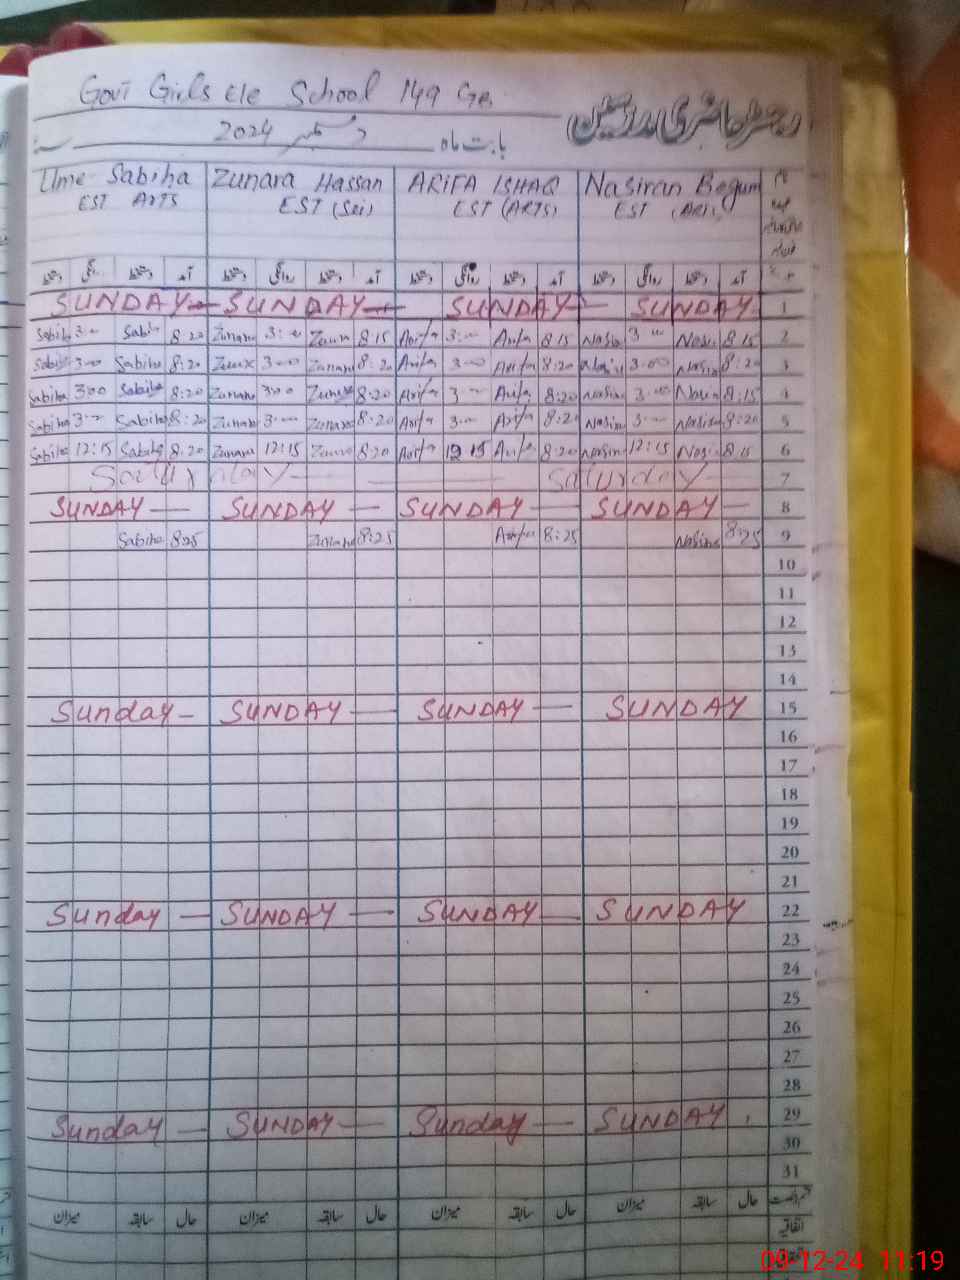 Govt Girls cle School 149 GB.
رجسٹر حاضری مدرسین
بابت ماہ دسمبر 2024
Ume Sabiha Zunara Hassan ARIFA ISHAQ Nasiran Begum نام
EST ArTS EST (Sci) EST (ARTS) EST (Arts)
دستخط روانگی دستخط آمد دستخط روانگی دستخط آمد دستخط روانگی دستخط آمد دستخط روانگی دستخط آمد
SUNDAY SUNDAY SUNDAY SUNDAY 1
Sabiha 3:00 Sabi 8:20 Zunara 3:00 Zunara 8:15 Arifa 3:00 Arifa 8:15 Nasira 3:00 Nasi 8:15 2
Sabiha 3:00 Sabiha 8:20 3:00 Zunara 8:20 Arifa 3:00 Arifa 8:20 3:00 Nasira 8:20 3
Sabiha 300 Sabiha 8:20 Zunara 300 Zunara 8:20 Arifa 3:00 Arifa 8:20 Nasira 3:00 Nasira 8:15 4
Sabiha 3:00 Sabiha 8:20 Zunara 3:00 Zunara 8:20 Arifa 3:00 Arifa 8:20 Nasira 3:00 Nasira 8:20 5
Sabiha 12:15 Sabiha 8:20 Zunara 12:15 Zunara 8:20 Arifa 12:15 Arifa 8:20 Nasira 12:15 Nasi 8:15 6
Saturday Saturday 7
SUNDAY SUNDAY SUNDAY SUNDAY 8
Sabiha 8:25 Zunara 8:25 Arifa 8:25 Nasira 8:25 9
10
11
12
13
14
Sunday SUNDAY SUNDAY SUNDAY 15
16
17
18
19
20
21
Sunday SUNDAY SUNDAY SUNDAY 22
23
24
25
26
27
28
Sunday SUNDAY Sunday SUNDAY 29
30
31
میزان سابقہ حال میزان سابقہ حال میزان سابقہ حال میزان سابقہ حال
اتفاقیہ
09-12-24 11:19